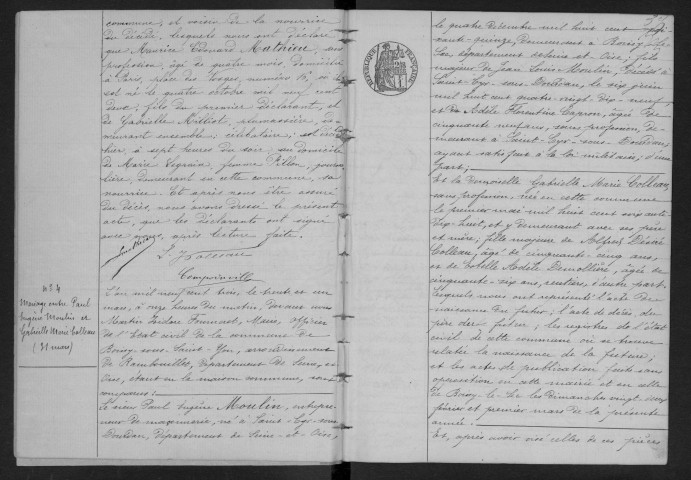 commune, et voisin de la nourrice
du décédé, lesquels nous ont déclaré
que Maurice Edouard Mathieu, sans
profession, âgé de quatre mois, domicilié
à Paris, place des Vosges, numéro
né le quatre octobre mil neuf cent
deux; fils du premier déclarant, et
de Gabrielle Milliot, plumassière, de-
meurant ensemble; célibataire; est décédé
hier, à sept heures du soir, au domicile
de Marie femme Pillon, journa-
lière, demeurant en cette commune, sa
nourrice. Et après nous être assuré
du décès, nous avons dressé le présent
acte, que les déclarants ont signé
avec nous, après lecture faite.
Nº 4
Mariage entre Paul
Eugène Moulin et
Gabrielle Marie Colleau
(31 mars)
L'an mil neuf cent trois, le trente et un
mars, à onze heures du matin, devant nous
Martin Isidore Maire, officier
de l'état civil de la commune de
sous-Saint-Yon, arrondissement
de Rambouillet, département de Seine-et-
Oise, étant en la maison commune, sont
comparus:
Le sieur Paul Eugène Moulin, entrepre-
neur de maçonnerie, né à Saint-Cyr-sous-
Dourdan, département de Seine-et-Oise,
RÉPUBLIQUE FRANÇAISE
le quatre décembre mil huit cent soix-
ante-quinze, demeurant à Boissy-le-
Sec, département de Seine-et-Oise; fils
majeur de Jean Louis Moulin, décédé à
Saint-Cyr-sous-Dourdan, le six juin
mil huit cent quatre-vingt-dix-neuf,
et de Adèle Florentine Capron, âgée de
cinquante neuf ans, sans profession, de-
meurant à Saint-Cyr-sous-Dourdan,
ayant satisfait à la loi militaire; d'une
part;
Et la demoiselle Gabrielle Marie Colleau,
sans profession, née en cette commune
le premier mai mil huit cent soixante-
dix-huit, et y demeurant avec ses père
et mère; fille majeure de Alfred Désiré
Colleau, âgé de cinquante-cinq ans,
et de Adèle âgée de
cinquante-six ans, rentiers, d'autre part.
Lesquels nous ont représenté l'acte de
naissance du futur; l'acte de décès du
père du futur; les registres de l'état
civil de cette commune où se trouve
relatée la naissance de la future;
et les actes de publication faits sans
opposition en cette mairie et en celle
de Boissy-le-Sec les dimanches vingt-deux
février et premier mars de la présente
année.
Et, après avoir visé celles de ces pièces